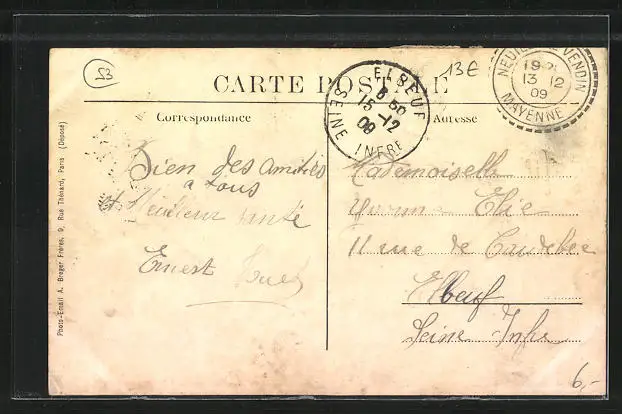 53
13€
CARTE POSTALE
ELBEUF
8 50
15 -12
09
SEINE INFRE
NEUILLY-LE-VENDIN
19
13 12
09
MAYENNE
Correspondance
Adresse
Bien des amitiés
a tous
et Meilleur santé
Ernest
Mademoiselle
Yvonne Elie
11 rue de Caudebec
Elbeuf
Seine Infre
Photo-Email A. Breger Frères, 9, Rue Thénard, Paris (Déposé)
6,-